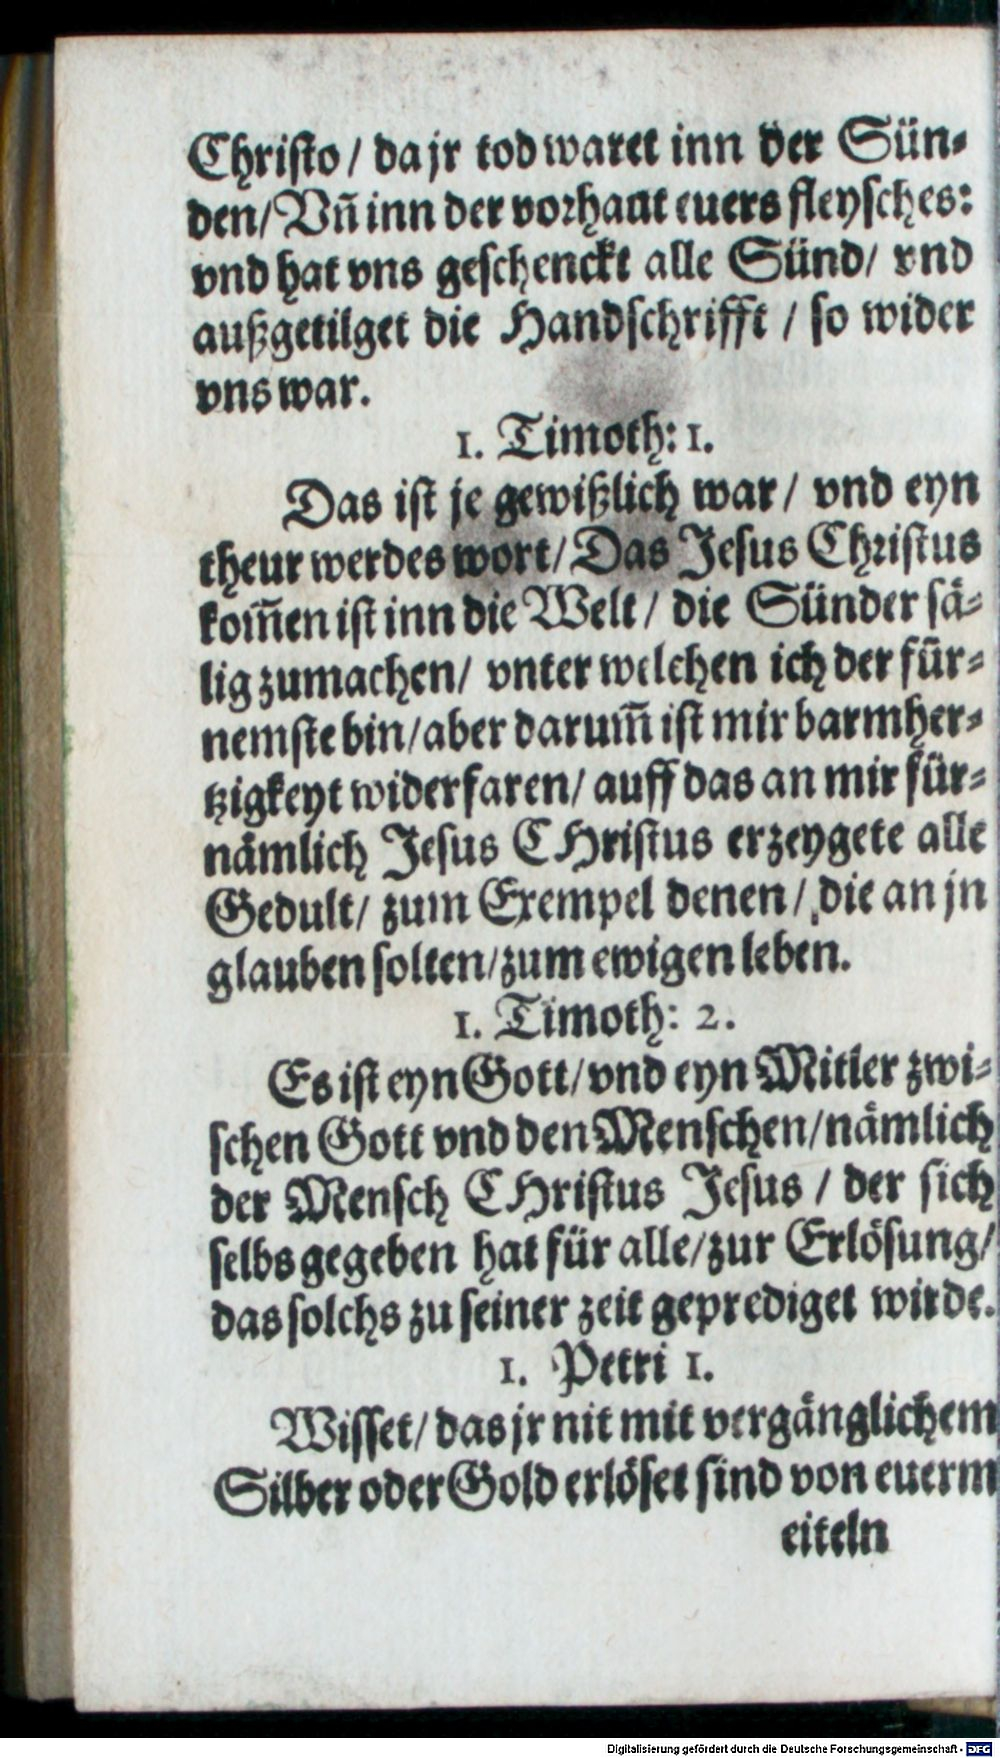 Christo / da jr tod waret inn der Sün-
den / Vñ inn der vorhaut euers fleysches:
vnd hat vns geschenckt alle Sünd / vnd
außgetilget die Handschrifft / so wider
vns war.
1. Timoth: 1.
Das ist je gewißlich war / vnd eyn
theur werdes wort / Das Jesus Christus
kom̃en ist inn die Welt / die Sünder sä-
lig zumachen / vnter welchen ich der für-
nemste bin / aber darum̃ ist mir barmher-
tzigkeyt widerfaren / auff das an mir für-
nämlich Jesus CHristus erzeygete alle
Gedult / zum Exempel denen / die an jn
glauben solten / zum ewigen leben.
1. Timoth: 2.
Es ist eyn Gott / vnd eyn Mitler zwi-
schen Gott vnd den Menschen / nämlich
der Mensch CHristus Jesus / der sich
selbs gegeben hat für alle / zur Erlösung /
das solchs zu seiner zeit geprediget wirde.
1. Petri 1.
Wisset / das jr nit mit vergänglichem
Silber oder Gold erlöset sind von euerm
eiteln
Digitalisierung gefördert durch die Deutsche Forschungsgemeinschaft - DFG